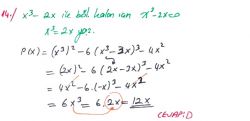 14-) x³ - 2x ile böl kalan ian x³-2x=0
x³=2x yaz.
P(x) = (x³)² - 6(x³-3x)³ - 4x²
= (2x)² - 6(2x-3x)³ - 4x²
= 4x² - 6.(-x)³ - 4x²
= 6x³ = 6.2x = 12x
CEVAP: D